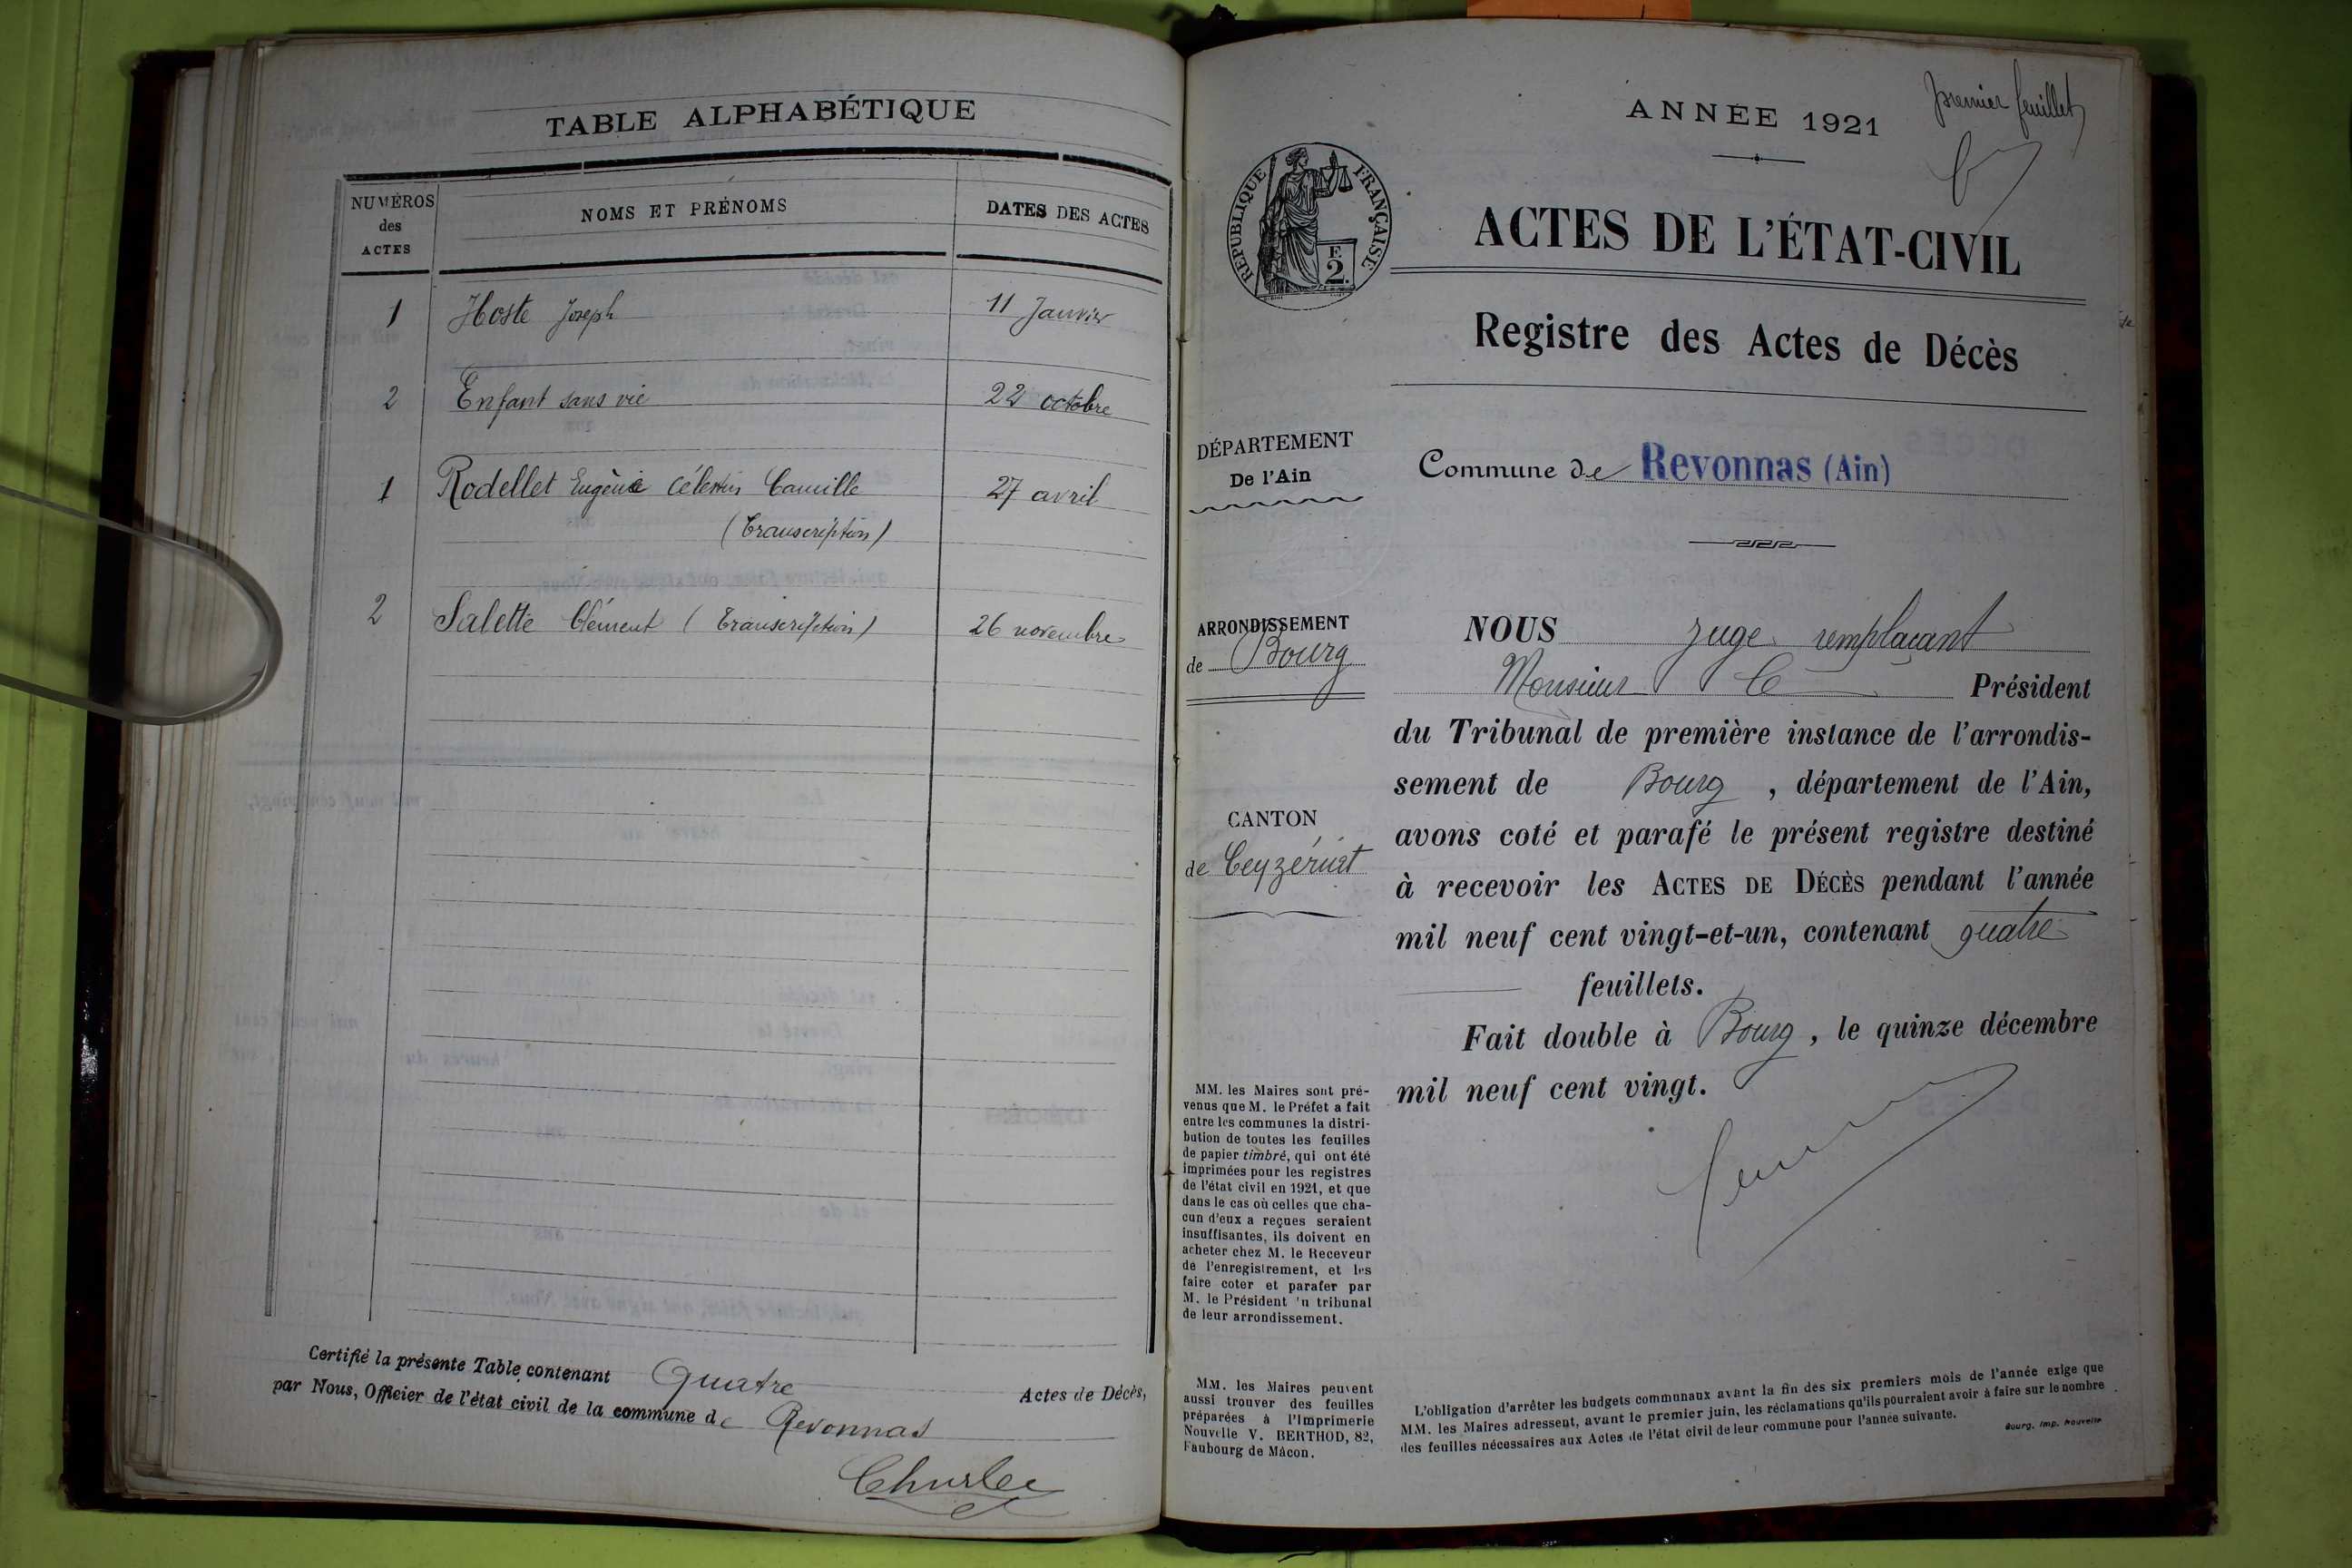 TABLE ALPHABÉTIQUE
NUMÉROS
des
ACTES
NOMS ET PRÉNOMS
DATES DES ACTES
1 Hoste Joseph 11 Janvier
2 Enfant sans vie 22 octobre
1 Rodellet Eugène Célestin Camille 27 avril
(Transcription)
2 Salette Clément (Transcription) 26 novembre
Certifié la présente Table contenant Quatre Actes de Décès,
par Nous, Officier de l'état civil de la commune de Revonnas
premier feuillet
ANNÉE 1921
RÉPUBLIQUE FRANÇAISE
F.
2.
ACTES DE L'ÉTAT-CIVIL
Registre des Actes de Décès
DÉPARTEMENT
De l'Ain
Commune de Revonnas (Ain)
ARRONDISSEMENT
de Bourg
CANTON
de Ceyzériat
NOUS juge remplaçant
Monsieur le Président
du Tribunal de première instance de l'arrondis-
sement de Bourg, département de l'Ain,
avons coté et parafé le présent registre destiné
à recevoir les ACTES DE DÉCÈS pendant l'année
mil neuf cent vingt-et-un, contenant quatre
feuillets.
Fait double à Bourg, le quinze décembre
mil neuf cent vingt.
MM. les Maires sont pré-
venus que M. le Préfet a fait
entre les communes la distri-
bution de toutes les feuilles
de papier timbré, qui ont été
imprimées pour les registres
de l'état civil en 1921, et que
dans le cas où celles que cha-
cun d'eux a reçues seraient
insuffisantes, ils doivent en
acheter chez M. le Receveur
de l'enregistrement, et les
faire coter et parafer par
M. le Président 'u tribunal
de leur arrondissement.
MM. les Maires peuvent
aussi trouver des feuilles
préparées à l'Imprimerie
Nouvelle V. BERTHOD, 82,
Faubourg de Mâcon.
L'obligation d'arrêter les budgets communaux avant la fin des six premiers mois de l'année exige que
MM. les Maires adressent, avant le premier juin, les réclamations qu'ils pourraient avoir à faire sur le nombre
des feuilles nécessaires aux Actes de l'état civil de leur commune pour l'année suivante.
Bourg, Imp. Nouvelle